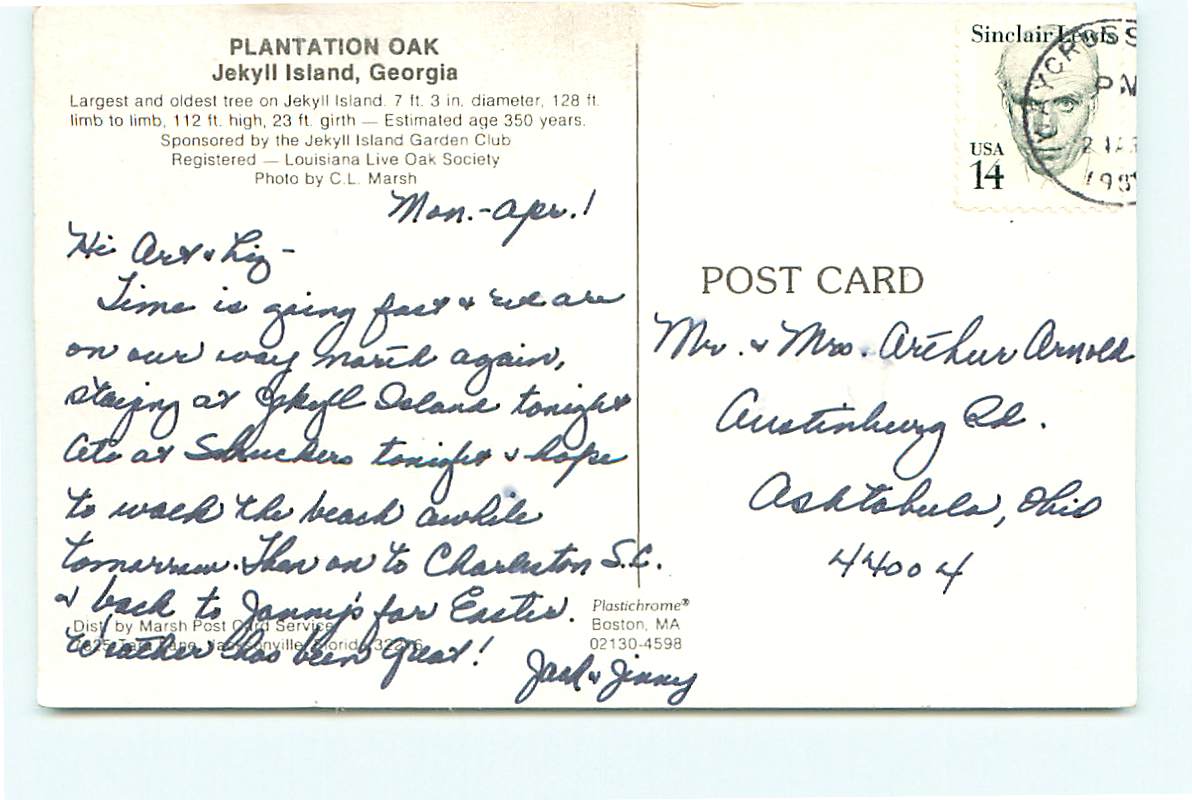 PLANTATION OAK
Jekyll Island, Georgia
Largest and oldest tree on Jekyll Island. 7 ft. 3 in. diameter, 128 ft.
limb to limb, 112 ft. high, 23 ft. girth — Estimated age 350 years.
Sponsored by the Jekyll Island Garden Club
Registered — Louisiana Live Oak Society
Photo by C.L. Marsh
Mon.-Apr. 1
Hi Art & Liz -
Time is going fast & we are
on our way north again,
staying at Jekyll Island tonight
Ate at Schuckers tonight & hope
to walk the beach awhile
tomorrow. Then on to Charleston S.C.
& back to Janny's for Easter.
Weather has been Great!
Jack & Jinny
Dist. by Marsh Post Card Service
Lane, Jacksonville, Florida
Plastichrome®
Boston, MA
02130-4598
Sinclair Lewis
USA
14
WAYCROSS
PM
POST CARD
Mr. & Mrs. Arthur Arnold
Austinburg Rd.
Ashtabula, Ohio
44004